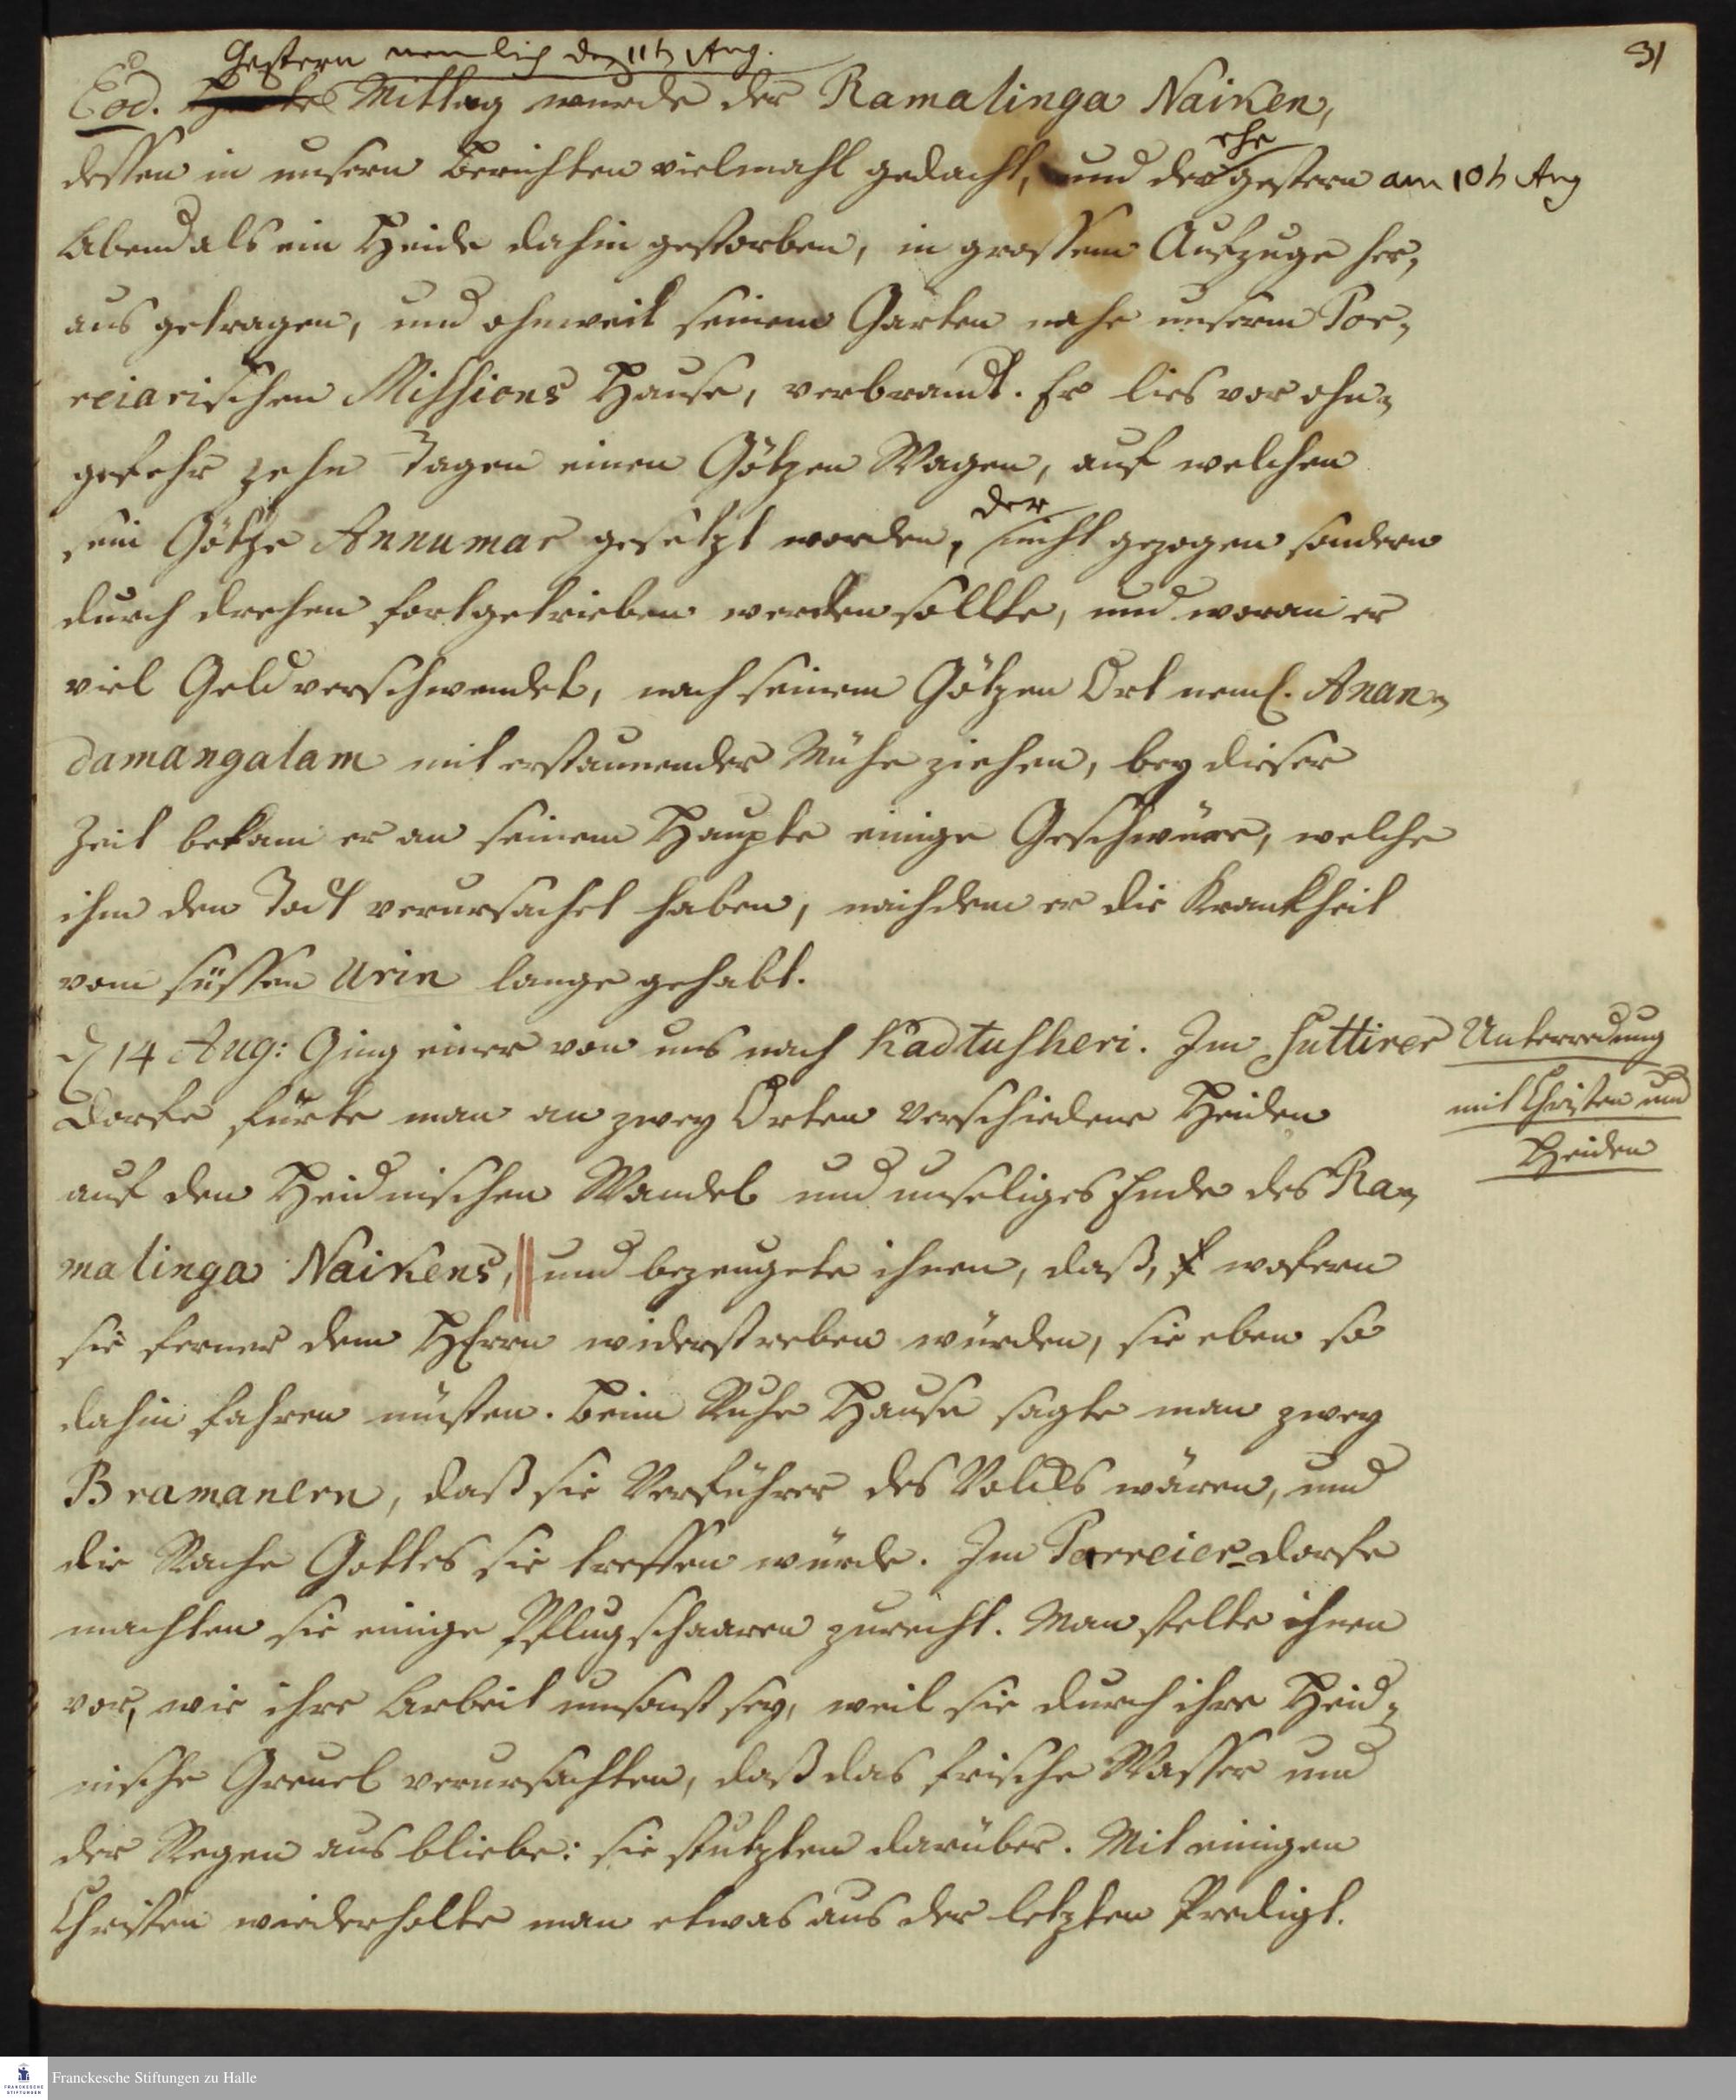 31
Gestern nemlich den 11t Aug.
Eod. Heute Mittag wurde der Ramalinga Naiken,
dessen in unsern Berichten vielmahl gedacht, und der ehegestern am 10t Aug
Abend als ein Heide dahin gestorben, in grossem Aufzuge her-
aus getragen, und ohnweit seinem Garten nahe unserm Por-
reiarischen Missions Hause, verbrandt. Er lies vor ohn-
gefehr zehn Tagen einen Götzen Wagen, auf welchen
sein Götze Annumar gesetzt worden, der nicht gezogen sondern
durch drehen fortgetrieben werden sollte, und woran er
viel Geld verschwendet, nach seinem Götzen Ort neml. Anan-
damangalam mit erstaunender Mühe ziehen, bey dieser
Zeit bekam er an seinem Haupte einige Geschwüre, welche
ihm den Todt verursachet haben, nachdem er die Krankheit
vom süssen Urin lange gehabt.
D 14 Aug: Ging einer von uns nach Kadtusheri. Im Suttirer
Dorfe fürte man an zwey Orten verschiedene Heiden
auf den Heidnischen Wandel und unseliges Ende des Ra-
malinga Naikens, und bezeugete ihnen, daß, wofern
sie ferner dem HErrn widerstreben würden, sie eben so
dahin fahren müsten. Beim Ruhe Hause sagte man zwey
Bramanern, daß sie Verführer des Volcks wären, und
die Rache Gottes sie treffen würde. Im Parreier-dorfe
machten sie einige Pflugschaaren zurecht. Man stelte ihnen
vor, wie ihre Arbeit umsonst sey, weil sie durch ihre Heid-
nische Greuel verursachten, daß das frische Wasser und
der Regen aus bliebe: sie stutzten darüber. Mit einigen
Christen wiederholte man etwas aus der letzten Predigt.
Unterredung
mit Christen und
Heiden
Franckesche Stiftungen zu Halle